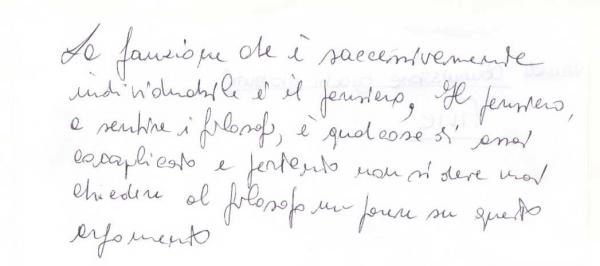 La funzione che è successivamente
individuabile è il pensiero, Il pensiero,
a sentire i filosofi, è qualcosa di assai
complicato e pertanto non si deve mai
chiedere al filosofo un parere su questo
argomento